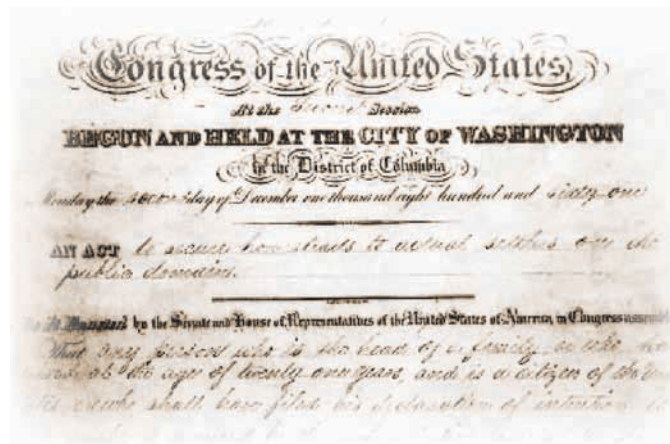 Congress of the United States,
At the Second Session
BEGUN AND HELD AT THE CITY OF WASHINGTON
in the District of Columbia
Monday the second day of December one thousand eight hundred and sixty-one
AN ACT to secure homesteads to actual settlers on the
public domain.
by the Senate and House of Representatives of the United States of America in Congress
That any person who is the head of a family, or who
at the age of twenty one years, and is a citizen of the
or who shall have filed his declaration of intention